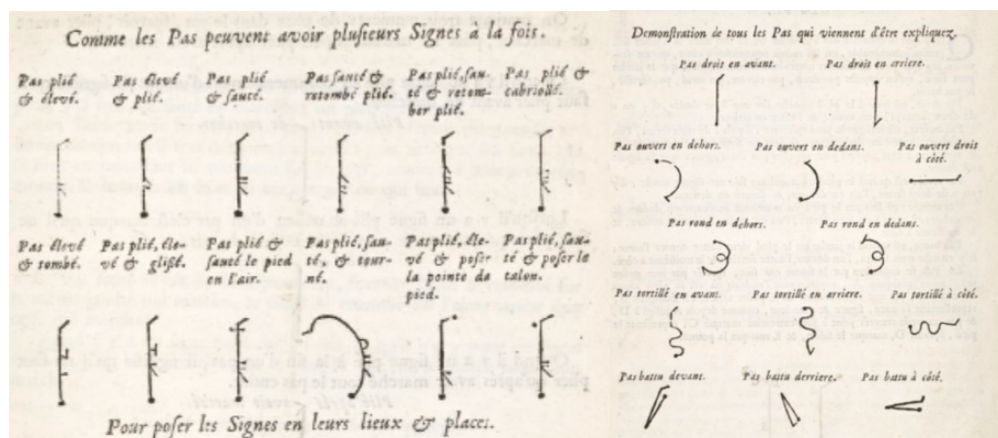 Comme les Pas peuvent avoir plusieurs Signes à la fois.
Pas plié & élevé.
Pas élevé & plié.
Pas plié & sauté.
Pas sauté & retombé plié.
Pas plié, sauté & retomber plié.
Pas plié & cabriollé.
Pas élevé & tombé.
Pas plié, élevé & glissé.
Pas plié & sauté le pied en l'air.
Pas plié, sauté, & tourné.
Pas plié, élevé & poser la pointe du pied.
Pas plié, sauté & poser le talon.
Pour poser les Signes en leurs lieux & places.
Demonstration de tous les Pas qui viennent d'être expliquez.
Pas droit en avant. Pas droit en arriere.
Pas ouvert en dehors. Pas ouvert en dedans. Pas ouvert droit à côté.
Pas rond en dehors. Pas rond en dedans.
Pas tortillé en avant. Pas tortillé en arriere. Pas tortillé à côté.
Pas battu devant. Pas battu derriere. Pas battu à côté.